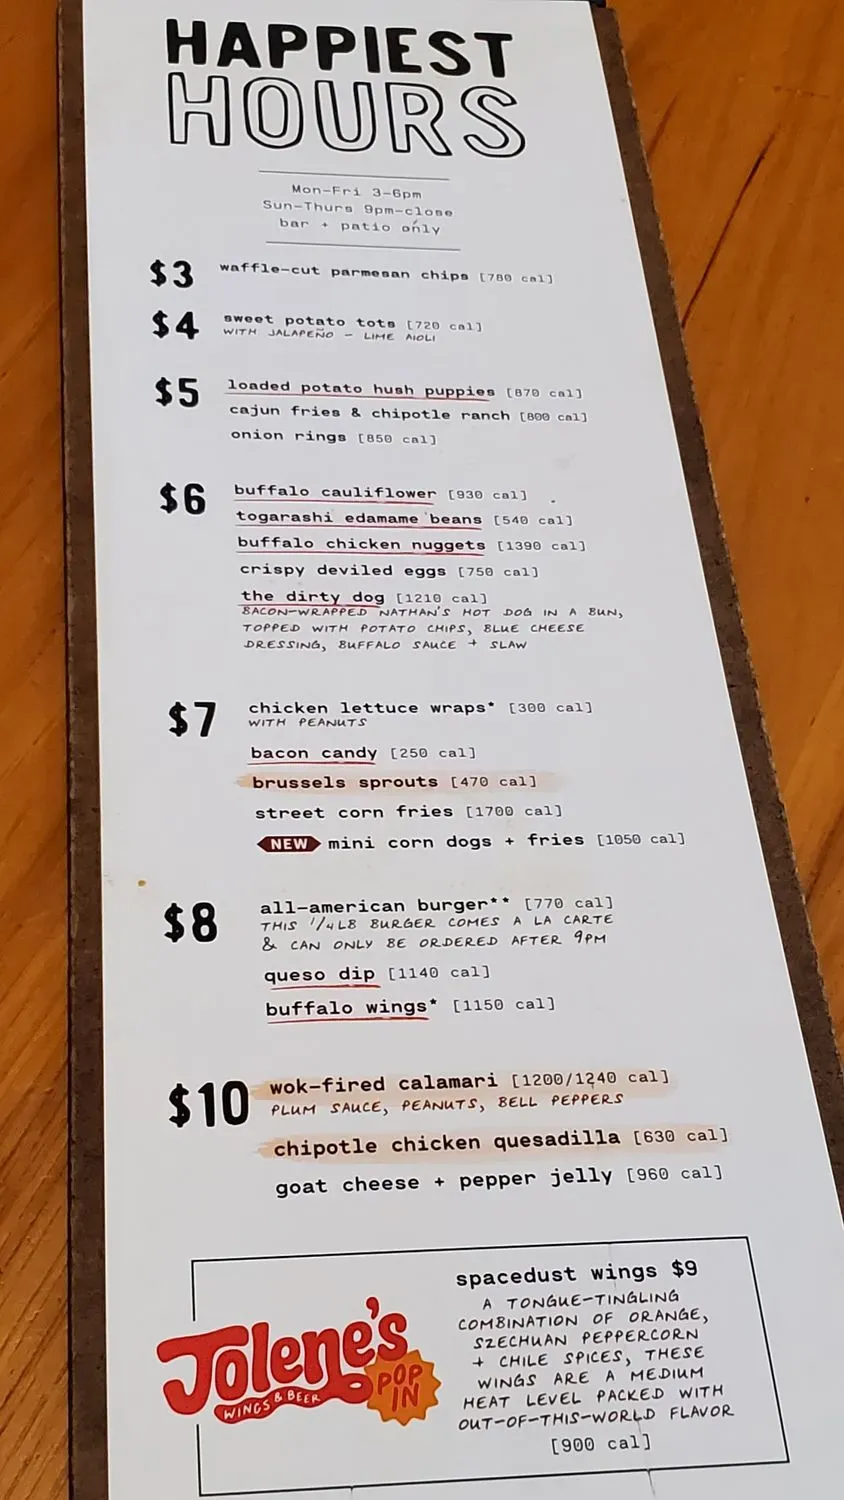 HAPPIEST
HOURS
Mon-Fri 3-6pm
Sun-Thurs 9pm-close
bar + patio only
$3 waffle-cut parmesan chips [780 cal]
$4 sweet potato tots [720 cal]
WITH JALAPEÑO - LIME AIOLI
$5 loaded potato hush puppies [870 cal]
cajun fries & chipotle ranch [800 cal]
onion rings [850 cal]
$6 buffalo cauliflower [930 cal]
togarashi edamame beans [540 cal]
buffalo chicken nuggets [1390 cal]
crispy deviled eggs [750 cal]
the dirty dog [1210 cal]
BACON-WRAPPED NATHAN'S HOT DOG IN A BUN,
TOPPED WITH POTATO CHIPS, BLUE CHEESE
DRESSING, BUFFALO SAUCE + SLAW
$7 chicken lettuce wraps* [300 cal]
WITH PEANUTS
bacon candy [250 cal]
brussels sprouts [470 cal]
street corn fries [1700 cal]
NEW mini corn dogs + fries [1050 cal]
$8 all-american burger** [770 cal]
THIS 1/4LB BURGER COMES A LA CARTE
& CAN ONLY BE ORDERED AFTER 9PM
queso dip [1140 cal]
buffalo wings* [1150 cal]
$10 wok-fired calamari [1200/1240 cal]
PLUM SAUCE, PEANUTS, BELL PEPPERS
chipotle chicken quesadilla [630 cal]
goat cheese + pepper jelly [960 cal]
Jolene's
WINGS & BEER
POP
IN
spacedust wings $9
A TONGUE-TINGLING
COMBINATION OF ORANGE,
SZECHUAN PEPPERCORN
+ CHILE SPICES, THESE
WINGS ARE A MEDIUM
HEAT LEVEL PACKED WITH
OUT-OF-THIS-WORLD FLAVOR
[900 cal]